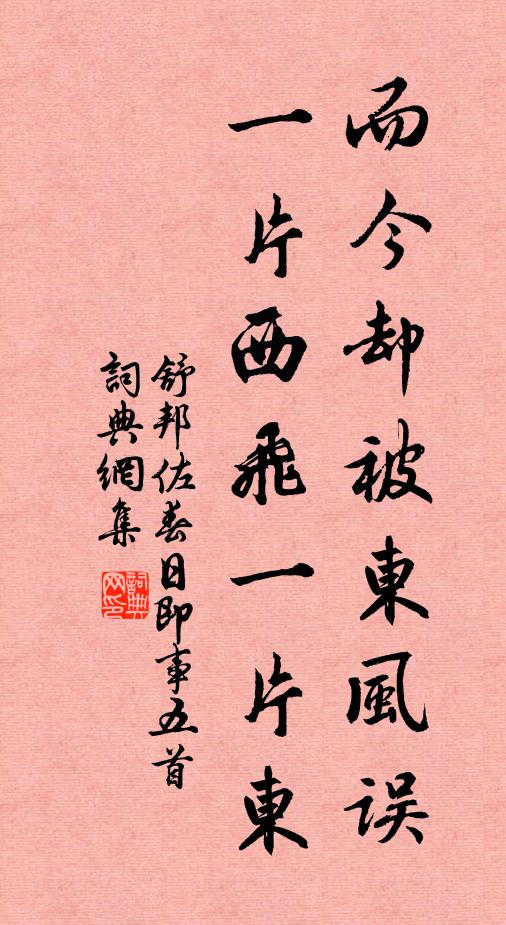 而今却被東風误
一片西飛一片東
舒邦佐春日即事五首
詞典網集
詞典网印